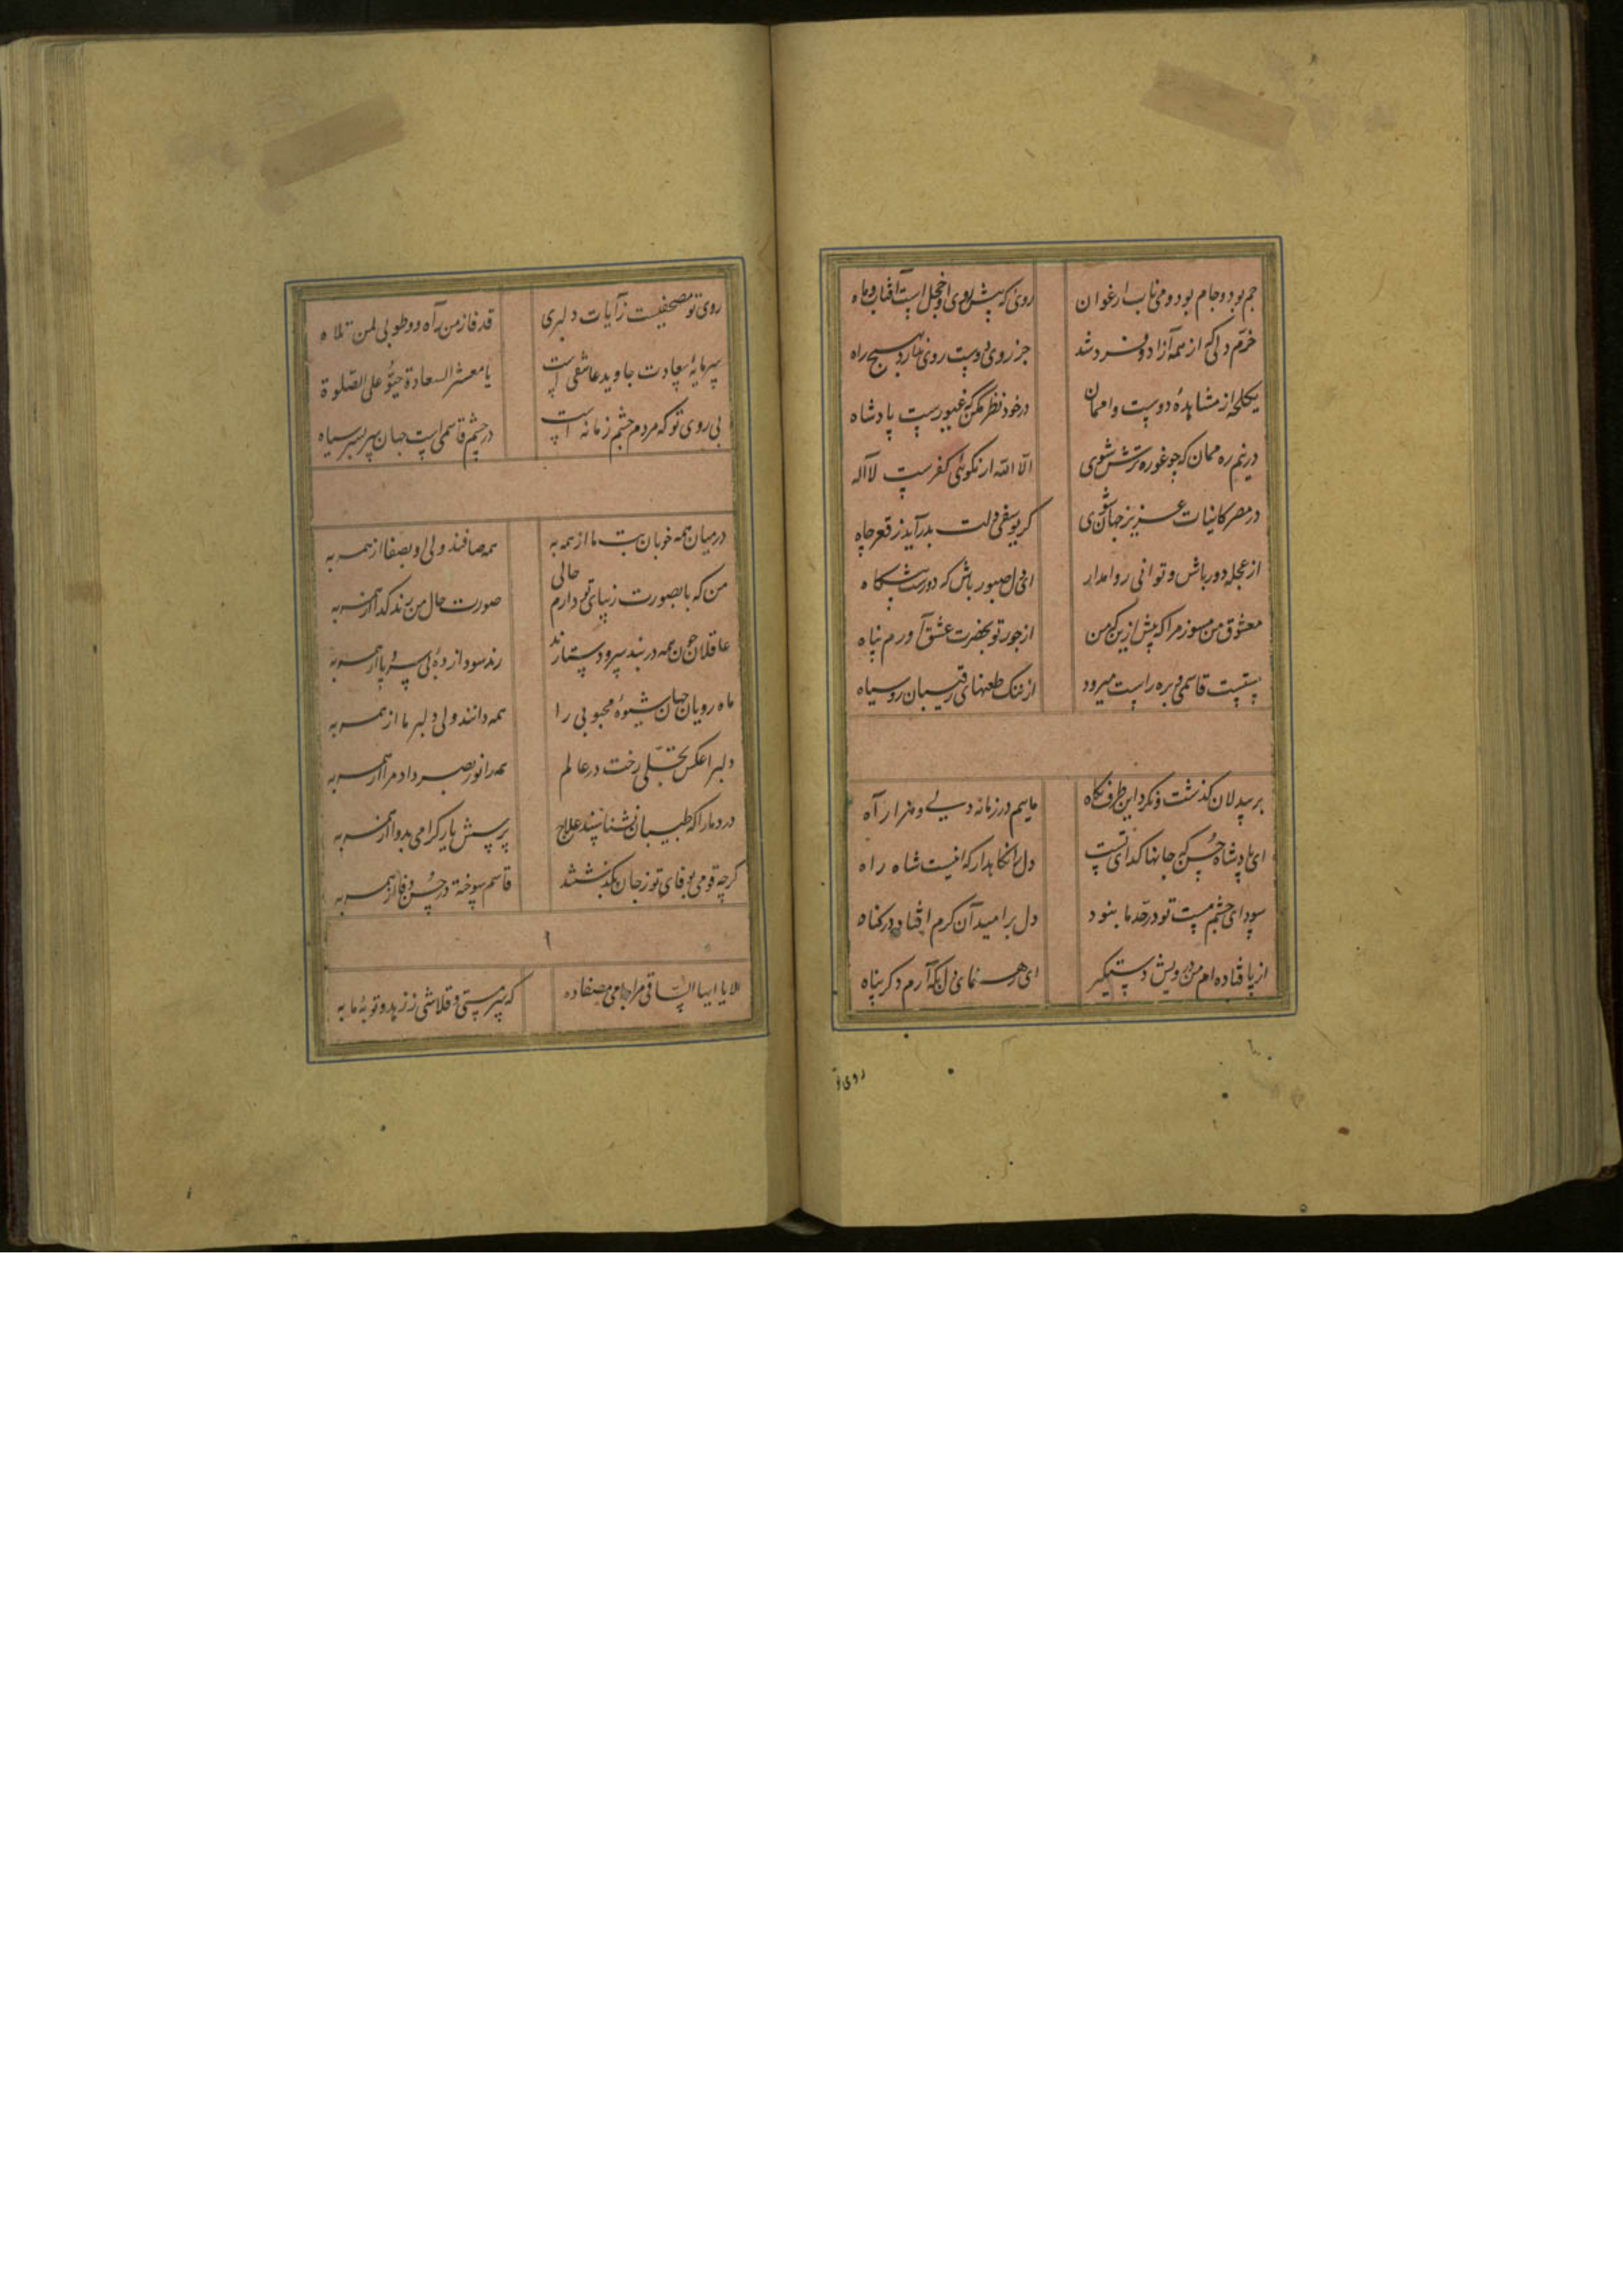 جم بود و جام بود و می ناب ارغوان روئی که پیش روی او خجل است آفتاب و ماه
خرّم دلی که از همه آزاد و فرد شد جز روی دوست روی ندارد بهیچ راه
یکلحظه از مشاهدهٔ دوست وا ممان در خود نظر مکن که غیورست پادشاه
در نیم ره ممان که چو غوره ترش شوی الّا اللّه ار نکوئی کفرست لااله
در مصر کاینات عزیز جهان شوی کر یوسف دلت بدر آید ز قعر چاه
از عجله دور باش و توانی روا مدار ای دل صبور باش که دورست پیشکاه
معشوق من مسوز مرا که پیش ازین که من از جور تو بحضرت عشق آورم پناه
مستست قاسمی و بره راست میرود از ننک طعنهای رقیبان روسیاه
بر بیدلان کذشت و نکرد این طرف نکاه ماییم در زمانه دلی و هزار آه
ای پادشاه حُسن که جانها کدای تست دل را نکاهدار که اینست شاه راه
سودای چشم مست تو در حدّ ما نبود دل بر امید آن کرم افتاد در کناه
از پا فتاده‌ام من درویش دستکیر ای رهنمای دل بکه آرم دکر پناه
روی تو
روی تو مصحفیست ز آیات دلبری قد فاز من رآه و طوبی لمن تلاه
سرمایهٔ سعادت جاوید عاشقی است یا معشر السعادة حیّو علی الصّلوة
بی روی تو که مردم چشم زمانه است در چشم قاسمی است جهان سربسر سیاه
در میان همه خوبان بت ما از همه به همه صافند ولی او بصفا از همه به
من که با صورت زیبای تو دارم حالی صورت حال من رند کدا از همه به
عاقلان چون همه در بند سر و دستارند رند سودازدهٔ بی سر و پا از همه به
ماه رویان جهان شیوهٔ محبوبی را همه دانند ولی دلبر ما از همه به
دلبرا عکس تجلّی رخت در عالم همه را نور بصر داد مرا از همه به
درد ما را که طبیبان نشناسند علاج پرسش یار کرامی بدوا از همه به
کرچه قومی بوفای تو ز جان بکذشتند قاسم سوخته در حُسن وفا از همه به
الا یا ایها السّاقی مرا جامی مصفا ده که سرمستی و قلاشی ز زهد و توبهٔ ما به